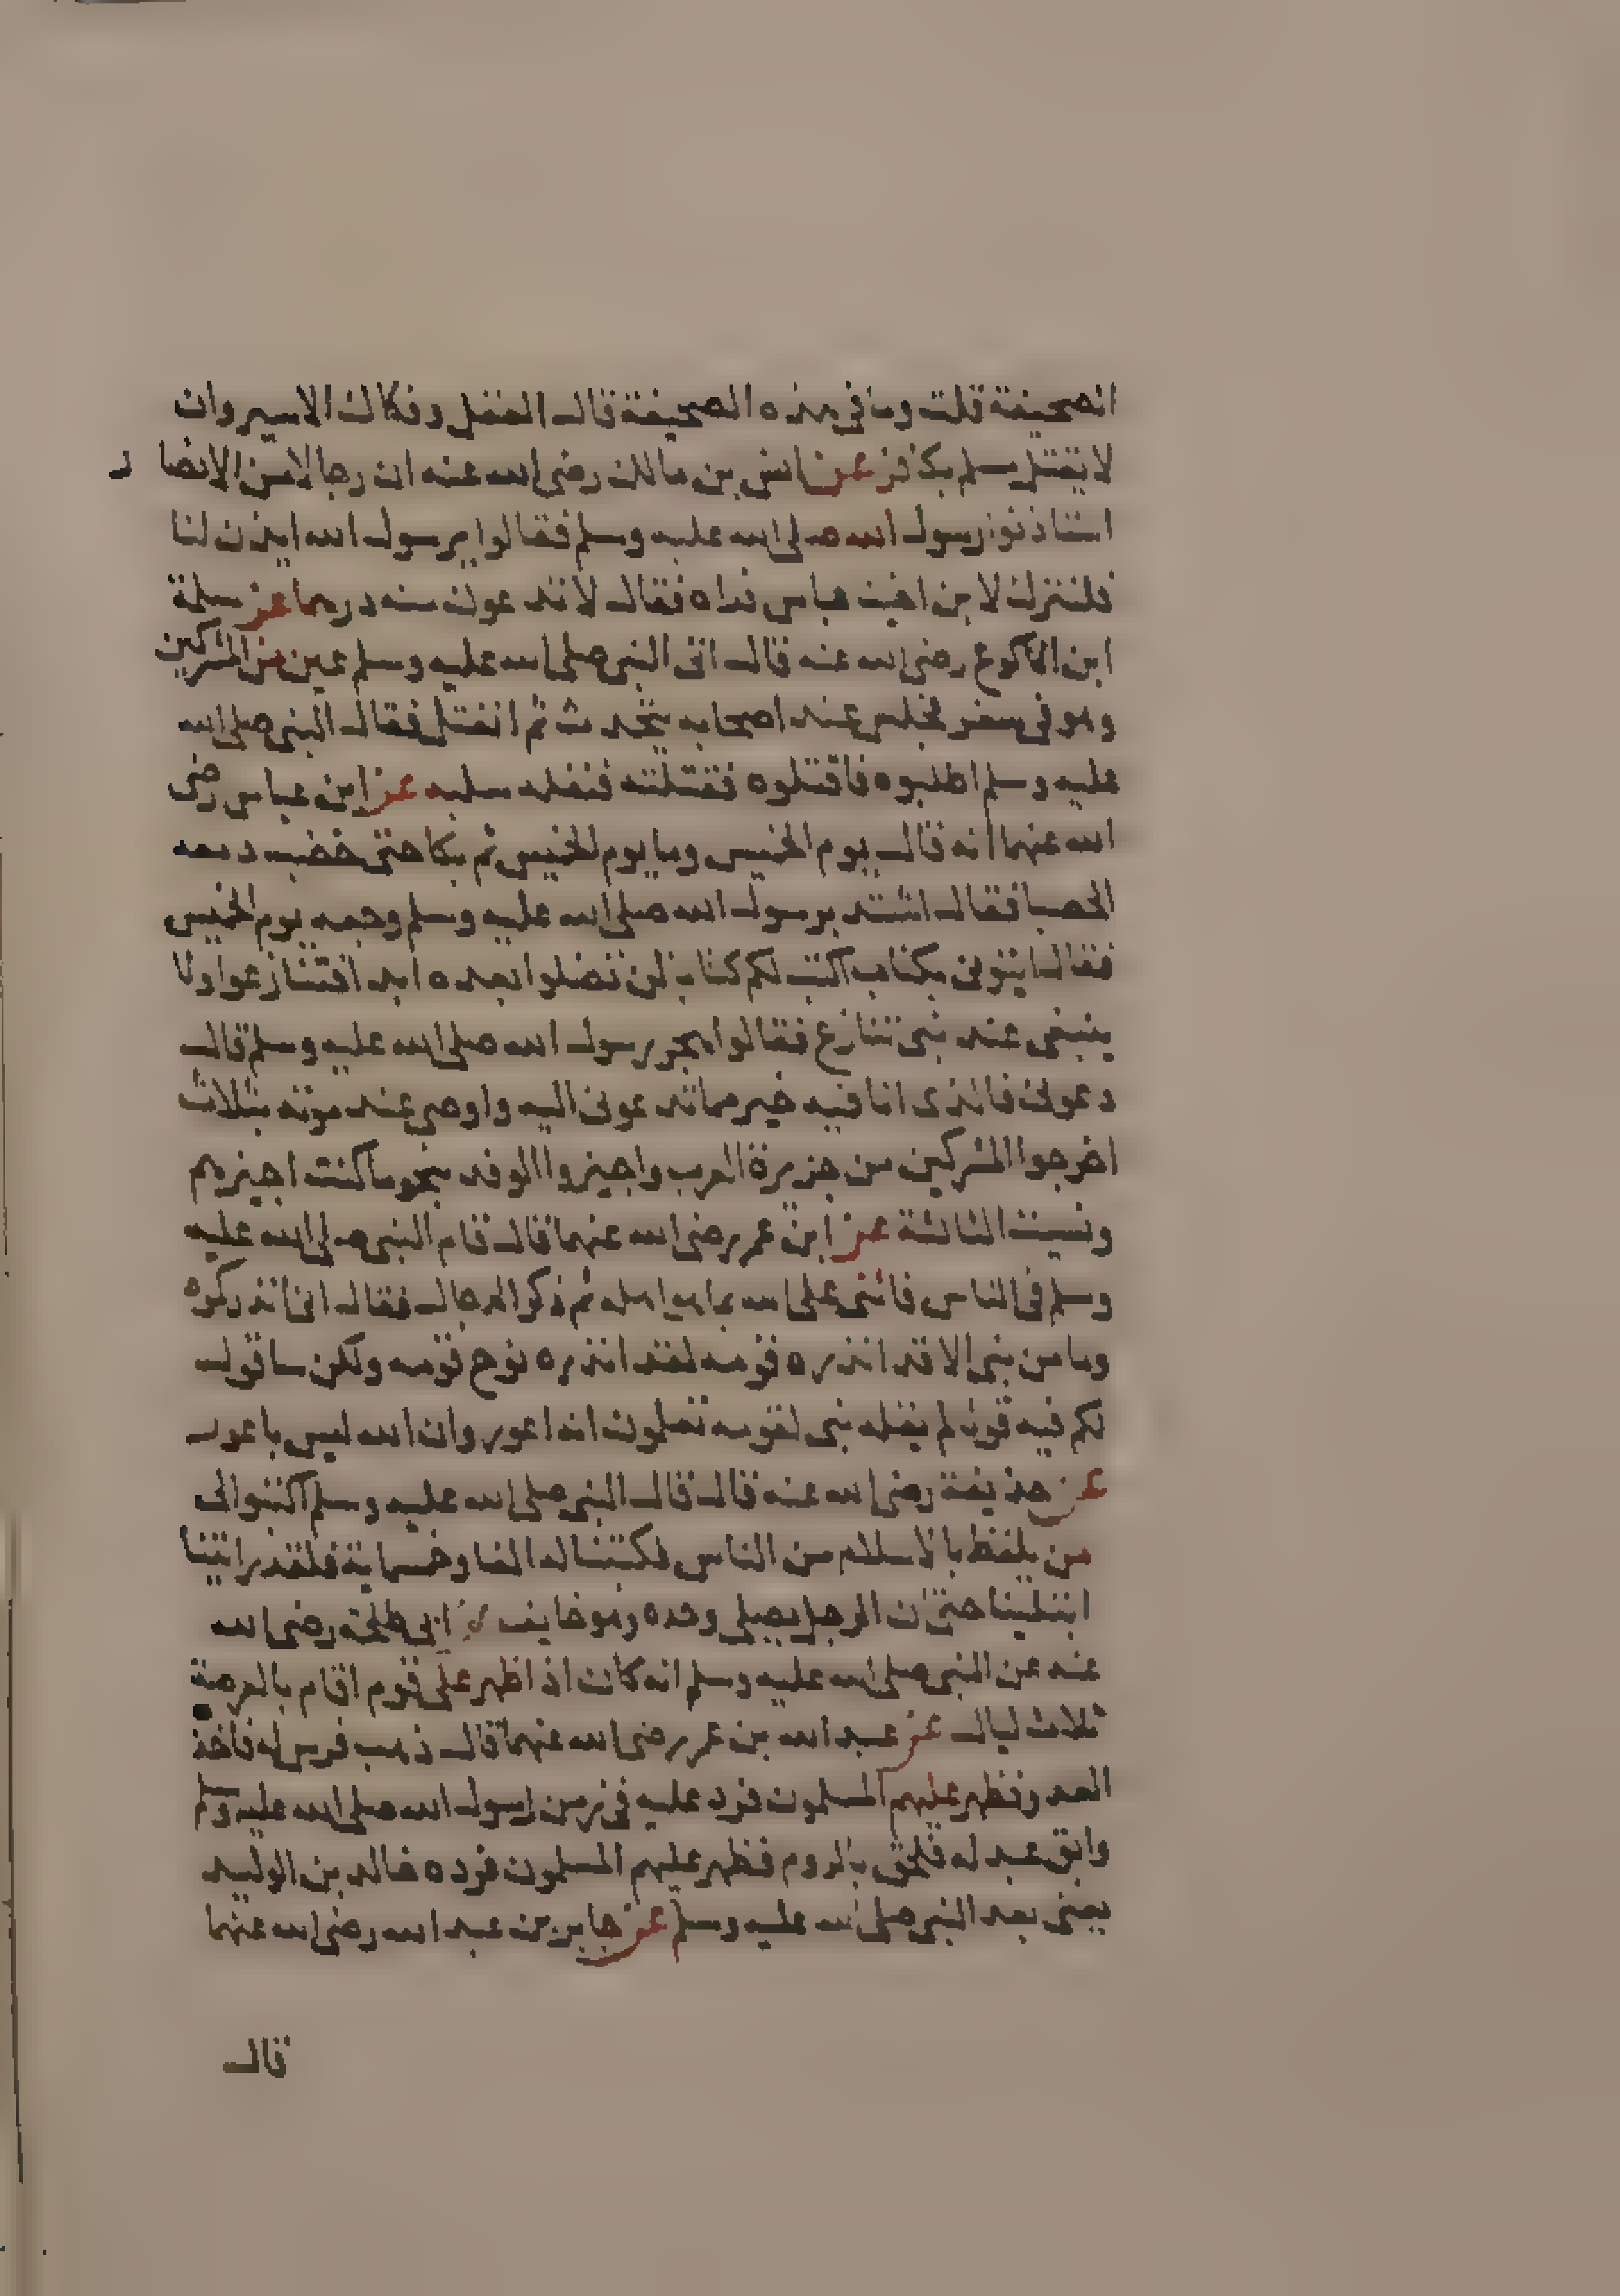 الصحيفة قلت وما في هذه الصحيفة قال العقل وفكاك الاسير وان
لا يقتل مسلم بكافر عن انس بن مالك رضي الله عنه ان رجالا من الانصار
استاذنوا رسول الله صلى الله عليه وسلم فقالوا يرسول الله ايذن لنا
فلنترك لابن اخت عباس فداه فقال لا تدعون منه درهما عن سلمة
ابن الاكوع رضي الله عنه قال اتى النبي صلى الله عليه وسلم عين من المشركين
وهو في سفر فجلس عند اصحابه يتحدث ثم انفتل فقال النبي صلى الله
عليه وسلم اطلبوه فاقتلوه فقتلته فنفله سلبه عن ابن عباس رضي
الله عنهما انه قال يوم الخميس وما يوم الخميس ثم بكا حتى خضب دمعه
الحصبا فقال اشتد برسول الله صلى الله عليه وسلم وجعه يوم الخميس
فقال ايتوني بكتاب اكتب لكم كتابا لن تضلوا بعده ابدا فتنازعوا ولا
ينبغي عند نبي تنازع فقالوا اهجر رسول الله صلى الله عليه وسلم قال
دعوني فالذي انا فيه خير مما تدعوني اليه واوصى عند موته بثلاث
اخرجوا المشركين من جزيرة العرب واجيزوا الوفد بنحو ما كنت اجيزهم
ونسيت الثالثة عن ابن عمر رضي الله عنهما قال قام النبي صلى الله عليه
وسلم في الناس فاثنى على الله بما هو اهله ثم ذكر الدجال فقال اني انذركموه
وما من نبي الا قد انذره قومه لقد انذره نوح قومه ولكن ساقول
لكم فيه قولا لم يقله نبي لقومه تعلمون انه اعور وان الله ليس باعور
عن حذيفة رضي الله عنه قال قال النبي صلى الله عليه وسلم اكتبوا لي
من يلفظ بالاسلام من الناس فكتبنا له الفا وخمسماية فلقد رايتنا
ابتلينا حتى ان الرجل يصلي وحده وهو خايف عن ابي طلحة رضي الله
عنه عن النبي صلى الله عليه وسلم انه كان اذا ظهر على قوم اقام بالعرصة
ثلاث ليال عن عبد الله بن عمر رضي الله عنهما قال ذهب فرس له فاخذه
العدو فظهر عليهم المسلمون فرد عليه في زمن رسول الله صلى الله عليه وسلم
وابق عبد له فلحق بالروم فظهر عليهم المسلمون فرده خالد بن الوليد
يعني بعد النبي صلى الله عليه وسلم عن جابر بن عبد الله رضي الله عنهما
قال